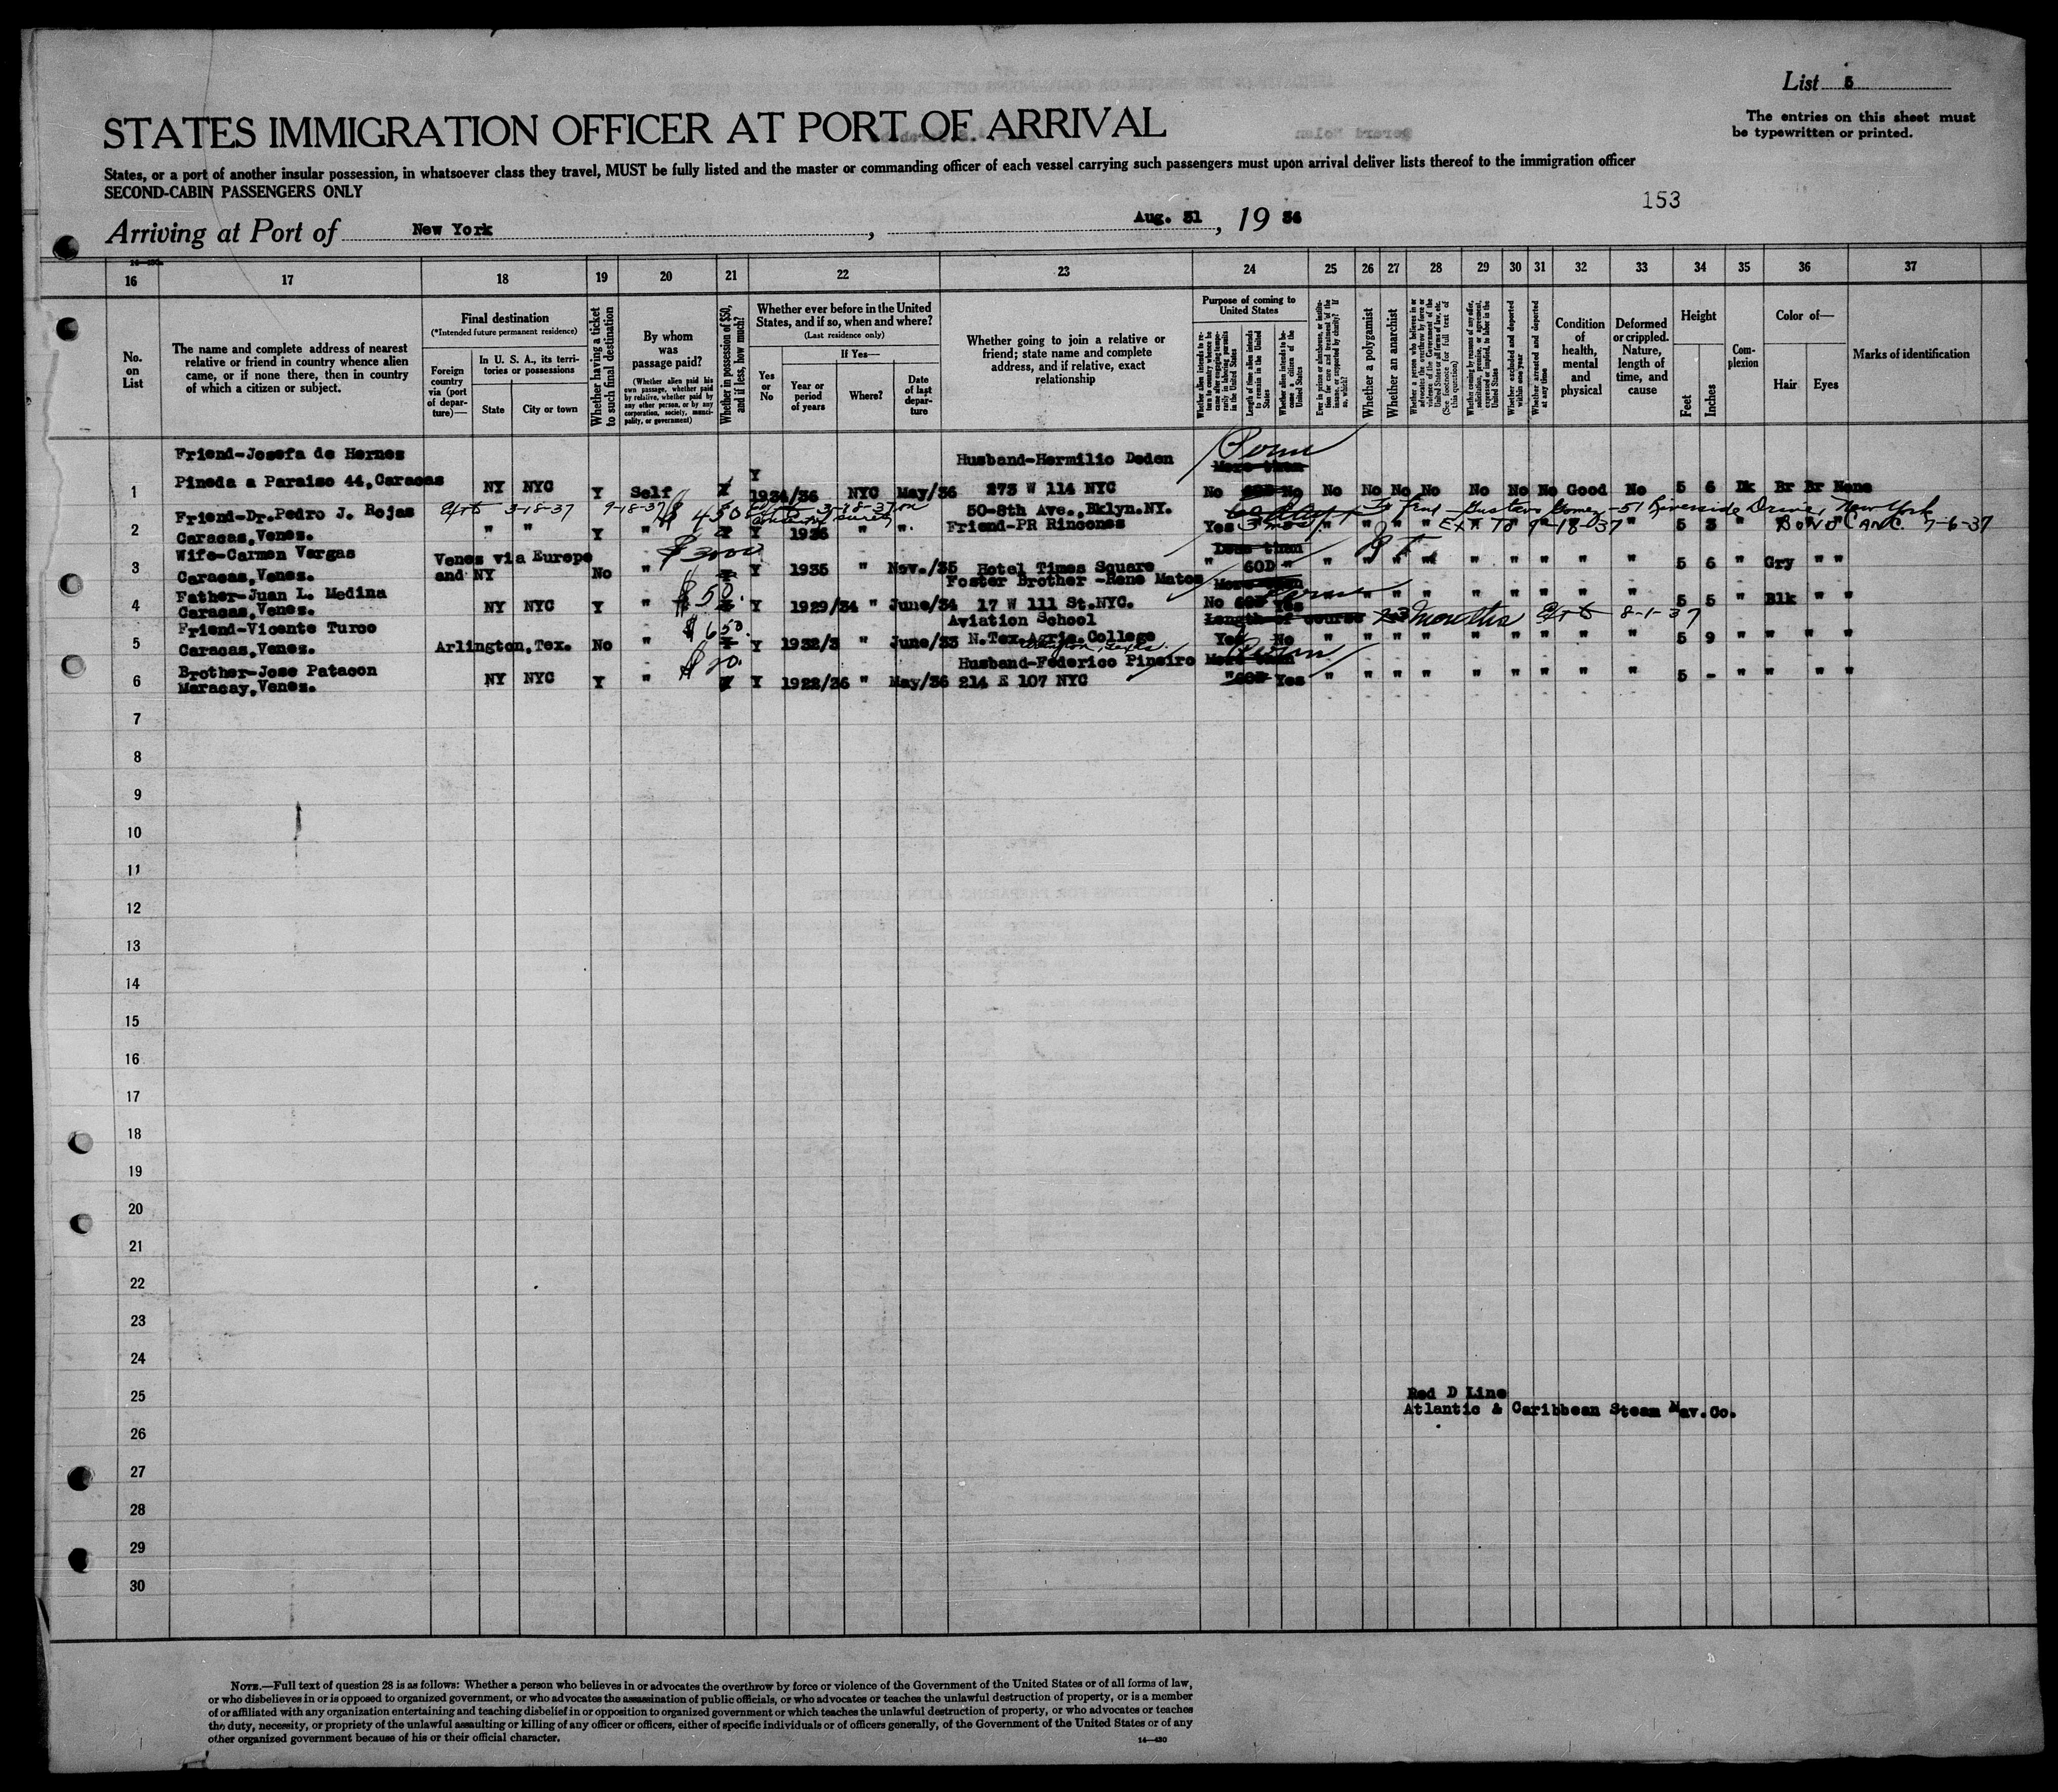 List 5
The entries on this sheet must
be typewritten or printed.
STATES IMMIGRATION OFFICER AT PORT OF ARRIVAL
States, or a port of another insular possession, in whatsoever class they travel, MUST be fully listed and the master or commanding officer of each vessel carrying such passengers must upon arrival deliver lists thereof to the immigration officer
SECOND-CABIN PASSENGERS ONLY
153
Arriving at Port of New York, Aug. 31, 19 36
16 17 18 19 20 21 22 23 24 25 26 27 28 29 30 31 32 33 34 35 36 37
No. on List
The name and complete address of nearest
relative or friend in country whence alien
came, or if none there, then in country
of which a citizen or subject.
Final destination
(*Intended future permanent residence)
Foreign country via (port of departure)—
In U. S. A., its territories or possessions
State
City or town
Whether having a ticket to such final destination
By whom was passage paid?
(Whether alien paid his own passage, whether paid by relative, whether paid by any other person, or by any corporation, society, municipality, or government)
Whether in possession of $50, and if less, how much?
Whether ever before in the United States, and if so, when and where?
(Last residence only)
If Yes—
Yes or No
Year or period of years
Where?
Date of last departure
Whether going to join a relative or
friend; state name and complete
address, and if relative, exact
relationship
Purpose of coming to United States
Length of time alien intends to remain in the United States
Whether alien intends to become a citizen of the United States
Whether a polygamist
Whether an anarchist
Whether excluded and deported within one year
Whether arrested and deported at any time
Condition of health, mental and physical
Deformed or crippled. Nature, length of time, and cause
Height
Feet
Inches
Complexion
Color of—
Hair
Eyes
Marks of identification
Friend-Josefa de Hernes Husband-Hermilio Deden Perm
More than
1 Pineda a Paraiso 44, Caracas NY NYC Y Self Y 1934/36 NYC May/36 273 W 114 NYC No 60D No No No No No No No No Good No 5 6 Dk Br Br None
Friend-Dr. Pedro J. Rojas Ext 3-18-37 9-18-37 $450 3-18-37 50-8th Ave., Bklyn. NY. Gustavo Gomez - 51 Riverside Drive, New York
2 Caracas, Venes. " " Y " Y 1936 " " Friend-PR Rincones Yes " " " " Ext to 9-18-37 " 5 3 " " Bond Canc. 7-6-37
Wife-Carmen Vargas Venes via Europe $3000 Less than
3 Caracas, Venes. and NY No " Y 1935 " Nov./35 Hotel Times Square " 60D " " " " " " " " " " 5 6 " Gry " "
Father-Juan L. Medina $50. Foster Brother -Rene Matos More than Perm
4 Caracas, Venes. NY NYC Y " Y 1929/34 " June/34 17 W 111 St. NYC. No 60D Yes " " " " " " " " " 5 5 " Blk " "
Friend-Vicente Turco $650. Aviation School Length of course months Ext 8-1-37
5 Caracas, Venes. Arlington, Tex. No " Y 1932/3 " June/33 N. Tex. Agric. College Yes No " " " " " " " " " 5 9 " " " "
Arlington, Texas.
Brother-Jose Patacon $20. Husband-Federico Pineiro More than Perm
6 Maracay, Venes. NY NYC Y " Y 1922/36 " May/36 214 E 107 NYC " 60D Yes " " " " " " " " " 5 - " " " "
7
8
9
10
11
12
13
14
15
16
17
18
19
20
21
22
23
24
25
26
27
28
29
30
Red D Line
Atlantic & Caribbean Steam Nav. Co.
NOTE.—Full text of question 28 is as follows: Whether a person who believes in or advocates the overthrow by force or violence of the Government of the United States or of all forms of law,
or who disbelieves in or is opposed to organized government, or who advocates the assassination of public officials, or who advocates or teaches the unlawful destruction of property, or is a member
of or affiliated with any organization entertaining and teaching disbelief in or opposition to organized government or which teaches the unlawful destruction of property, or who advocates or teaches
the duty, necessity, or propriety of the unlawful assaulting or killing of any officer or officers, either of specific individuals or of officers generally, of the Government of the United States or of any
other organized government because of his or their official character.
14—430